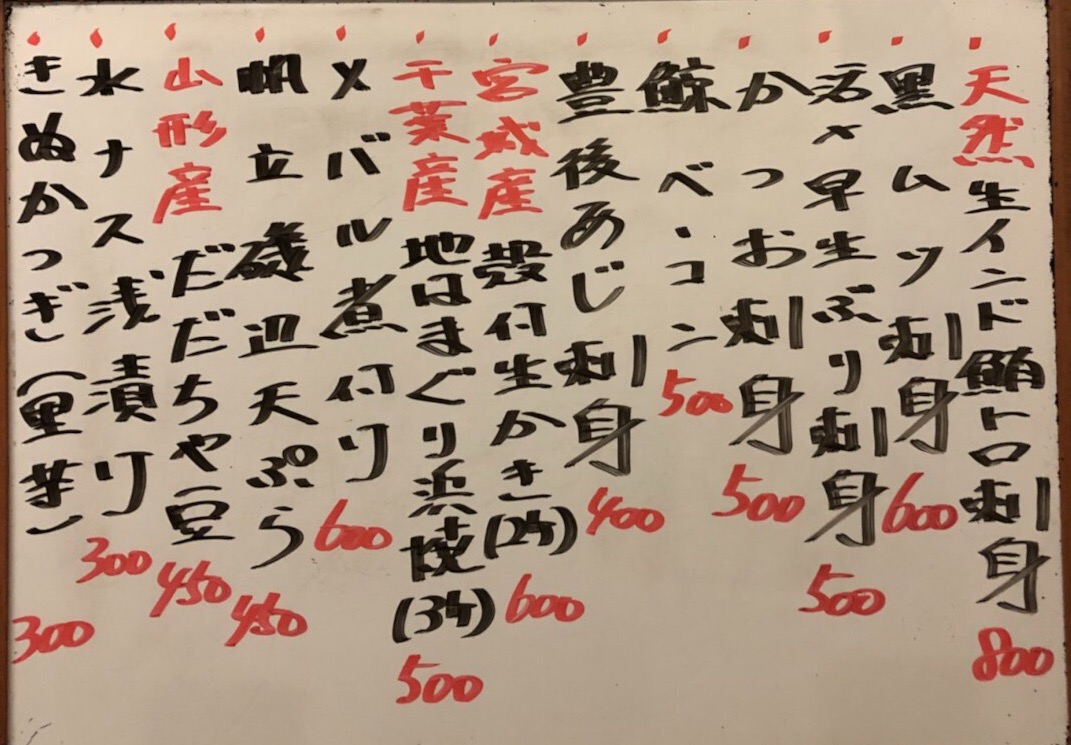 天然生インド鮪トロ刺身 800
黒ムツ刺身 600
若〆早生ぶり刺身 500
かつお刺身 500
鯨ベーコン 500
豊後あじ刺身 400
宮城産殻付生かき(2ケ) 600
千葉産地はまぐり浜焼(3ケ) 500
メバル煮付り 600
帆立磯辺天ぷら 450
山形産だだちゃ豆 450
水ナス浅漬り 300
きぬかつぎ(里芋) 300